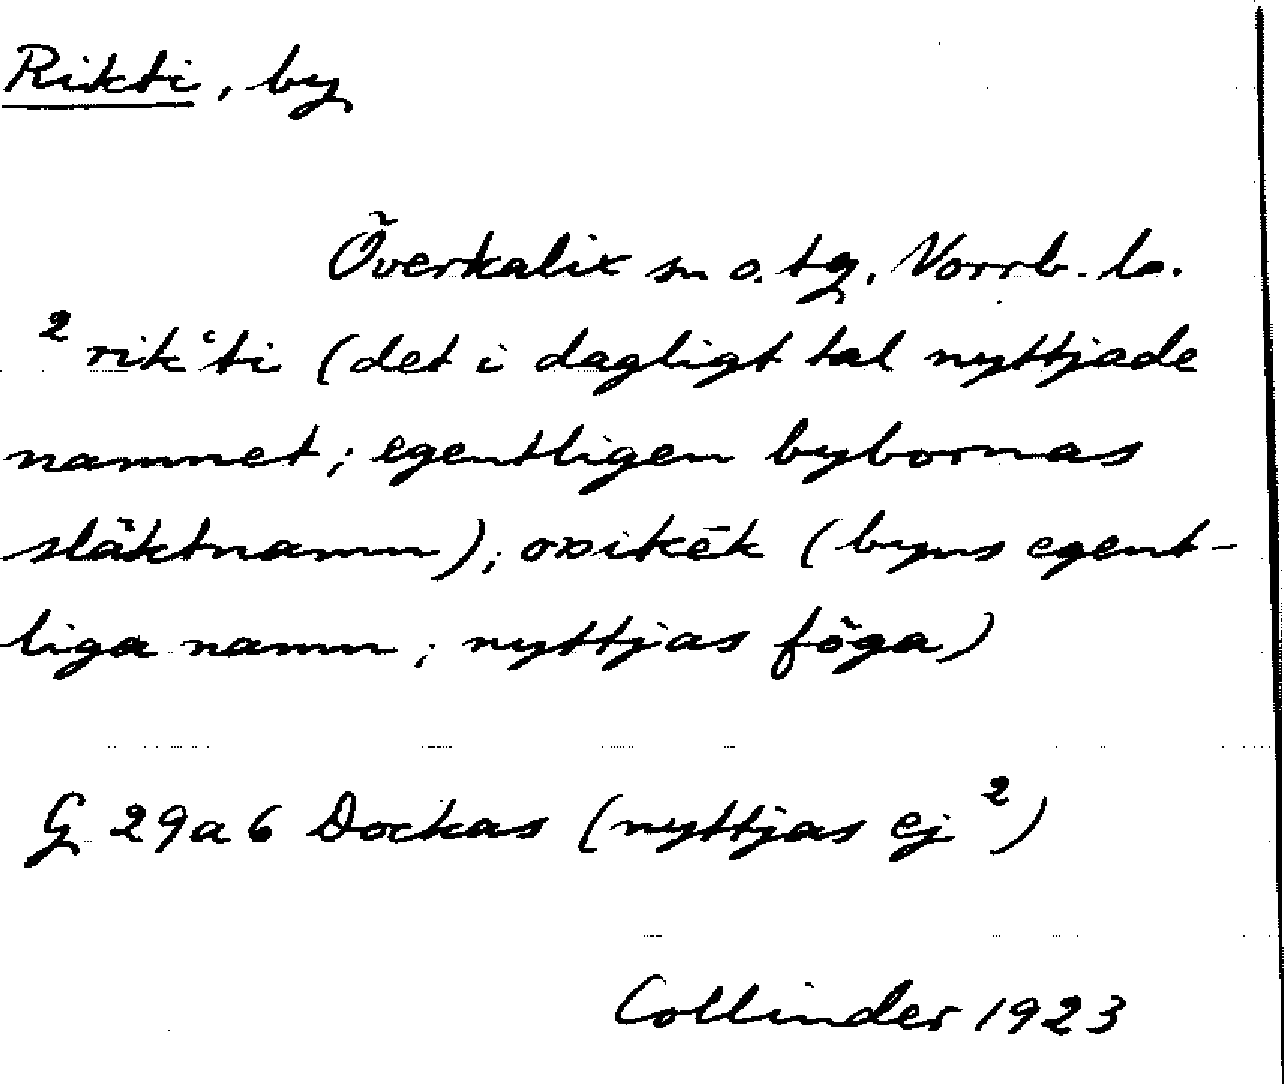 Rikti, by
Överkalix sn o. tg. Norrb. la.
² rik‘ti (det i dagligt tal nyttjade
namnet; egentligen bybornas
släktnamn); (byns egent-
liga namn; nyttjas föga)
G 29 a 6 Dockas (nyttjas ej ²)
Collinder 1923